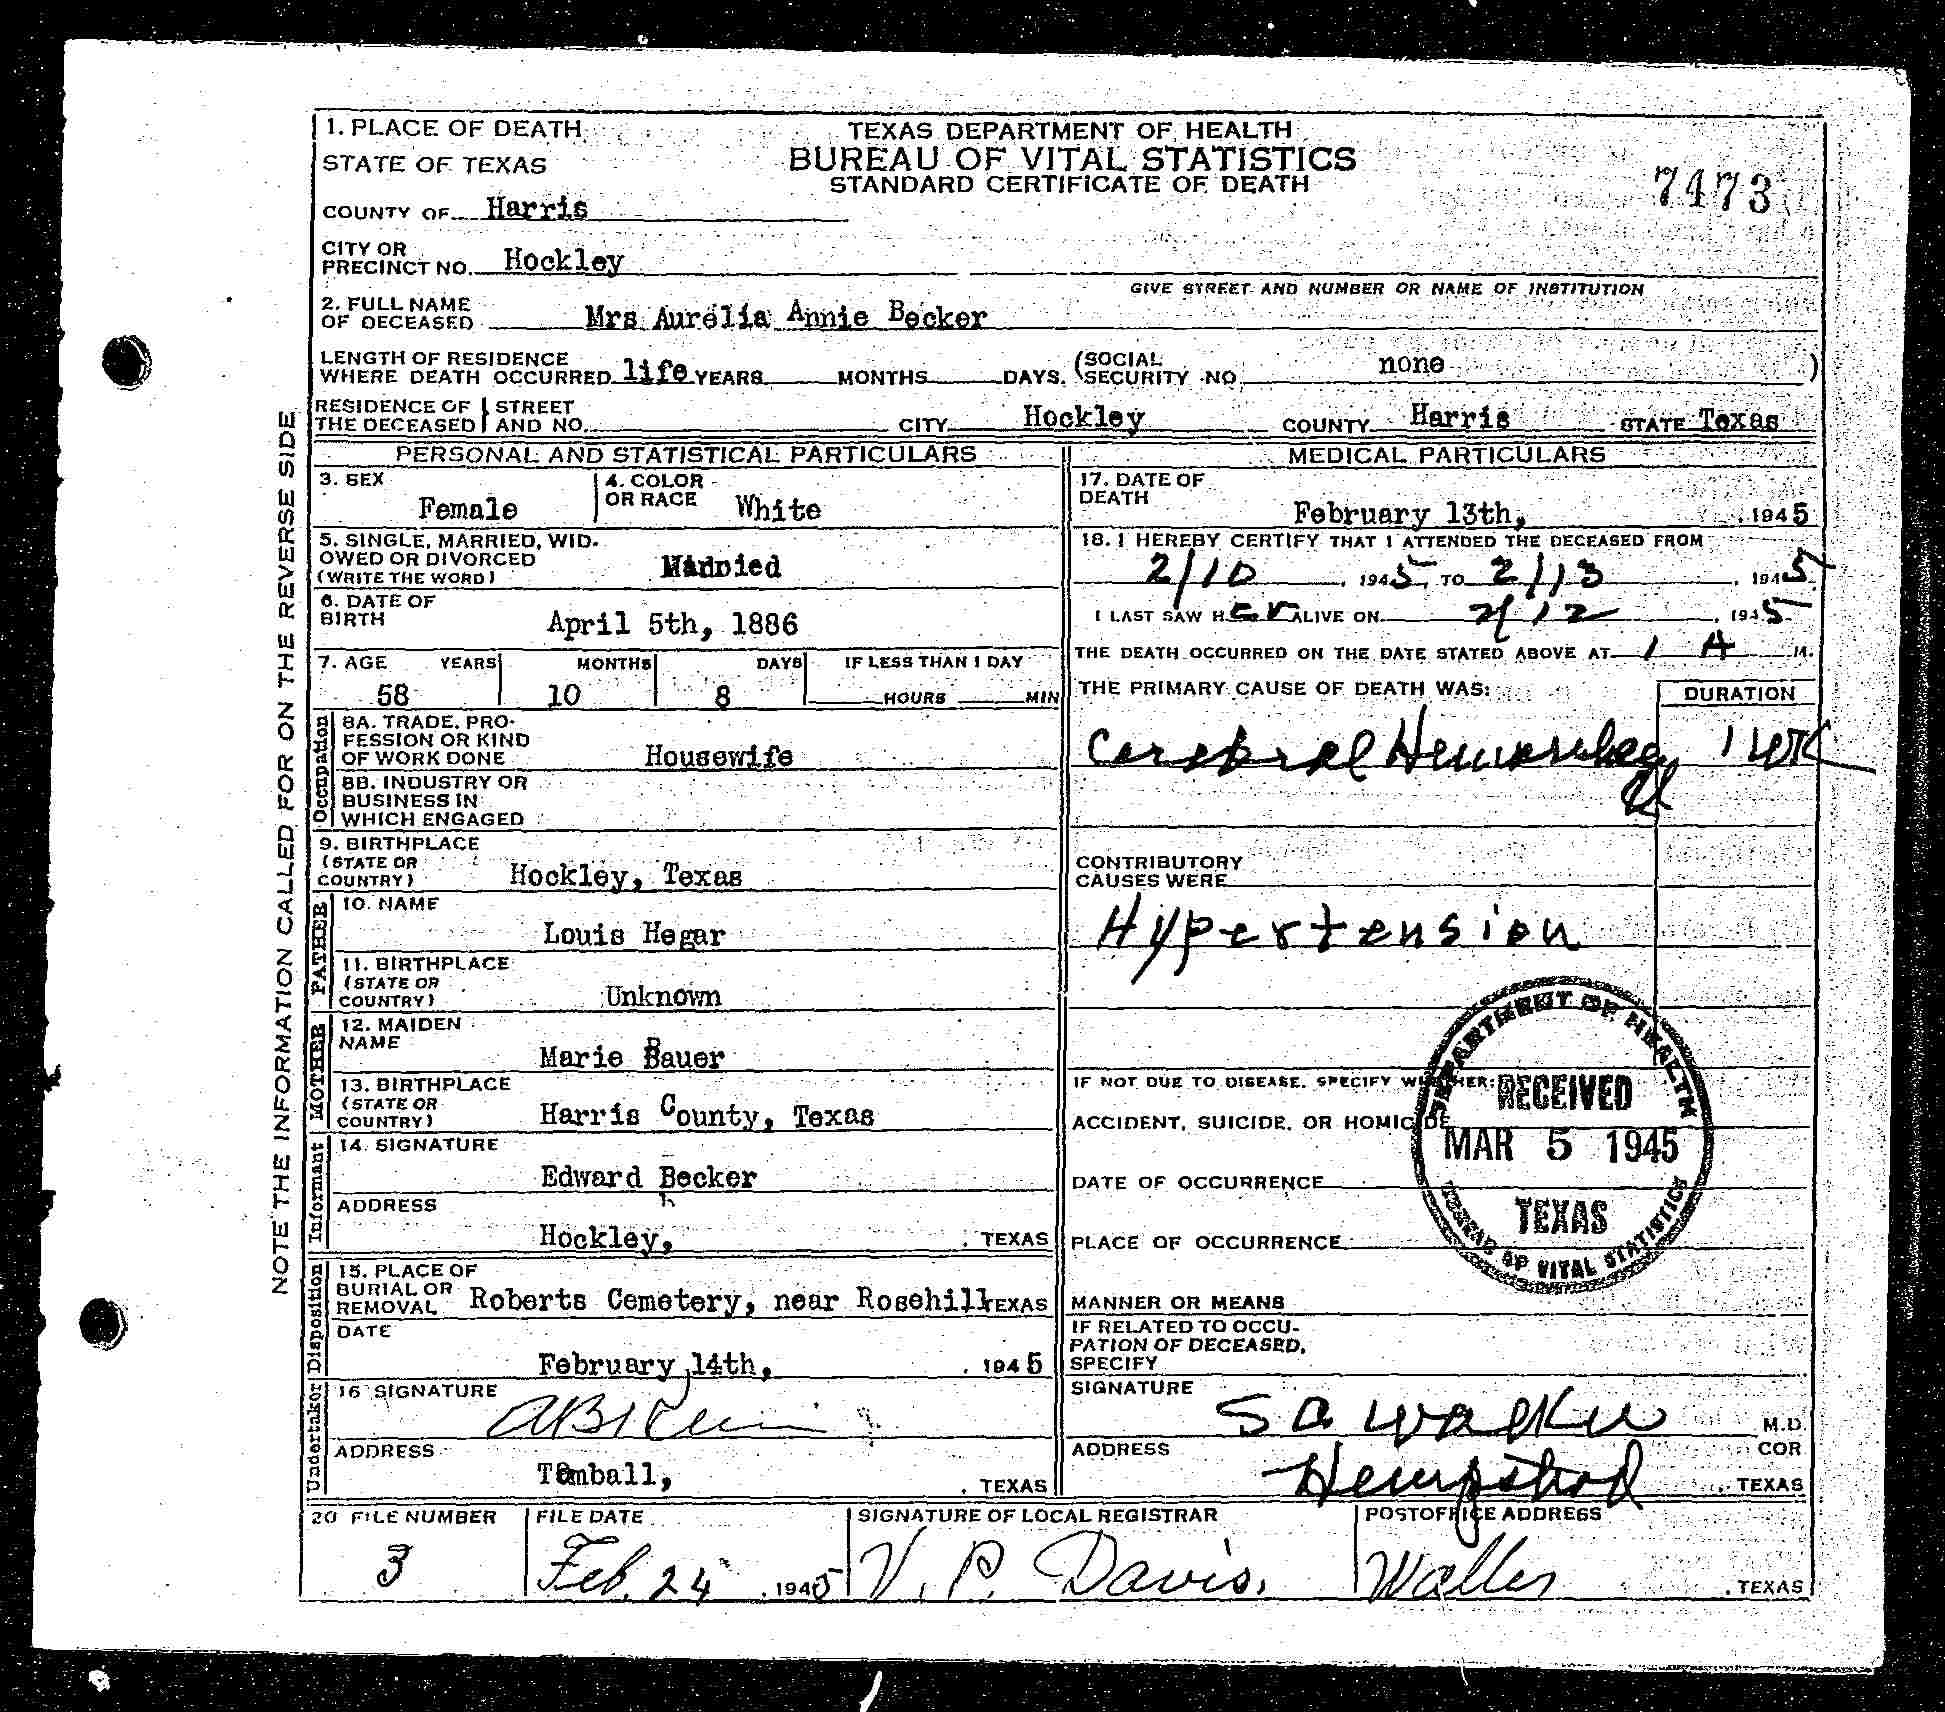 1. PLACE OF DEATH
STATE OF TEXAS
COUNTY OF Harris
TEXAS DEPARTMENT OF HEALTH
BUREAU OF VITAL STATISTICS
STANDARD CERTIFICATE OF DEATH
7473
CITY OR
PRECINCT NO. Hockley
GIVE STREET AND NUMBER OR NAME OF INSTITUTION
2. FULL NAME
OF DECEASED Mrs Aurelia Annie Becker
LENGTH OF RESIDENCE
WHERE DEATH OCCURRED life YEARS MONTHS DAYS. (SOCIAL
SECURITY NO. none )
RESIDENCE OF THE DECEASED STREET AND NO. CITY Hockley COUNTY Harris STATE Texas
NOTE THE INFORMATION CALLED FOR ON THE REVERSE SIDE
PERSONAL AND STATISTICAL PARTICULARS
3. SEX
Female
4. COLOR
OR RACE White
5. SINGLE, MARRIED, WID-
OWED OR DIVORCED
(WRITE THE WORD) Married
6. DATE OF
BIRTH April 5th, 1886
7. AGE YEARS MONTHS DAYS IF LESS THAN 1 DAY
58 10 8 HOURS MIN
Occupation
8A. TRADE, PRO-
FESSION OR KIND
OF WORK DONE Housewife
8B. INDUSTRY OR
BUSINESS IN
WHICH ENGAGED
9. BIRTHPLACE
(STATE OR
COUNTRY) Hockley, Texas
FATHER
10. NAME
Louis Hegar
11. BIRTHPLACE
(STATE OR
COUNTRY) Unknown
MOTHER
12. MAIDEN
NAME
Marie Bauer
13. BIRTHPLACE
(STATE OR
COUNTRY) Harris County, Texas
Informant
14. SIGNATURE
Edward Becker
ADDRESS
Hockley, , TEXAS
Disposition
15. PLACE OF
BURIAL OR
REMOVAL Roberts Cemetery, near Rosehill TEXAS
DATE
February 14th, , 1945
Undertaker
16 SIGNATURE
ADDRESS
Tomball, , TEXAS
MEDICAL PARTICULARS
17. DATE OF
DEATH February 13th, , 1945
18. I HEREBY CERTIFY THAT I ATTENDED THE DECEASED FROM
2/10 , 1945, TO 2/13 , 1945
I LAST SAW HER ALIVE ON 2/12 , 1945
THE DEATH OCCURRED ON THE DATE STATED ABOVE AT 1 A M.
THE PRIMARY CAUSE OF DEATH WAS: DURATION
Cerebral 1 wk
CONTRIBUTORY
CAUSES WERE
Hypertension
IF NOT DUE TO DISEASE, SPECIFY WHETHER:
ACCIDENT, SUICIDE, OR HOMICIDE
DATE OF OCCURRENCE
PLACE OF OCCURRENCE
MANNER OR MEANS
IF RELATED TO OCCU-
PATION OF DECEASED,
SPECIFY
DEPARTMENT OF HEALTH
RECEIVED
MAR 5 1945
TEXAS
BUREAU OF VITAL STATISTICS
SIGNATURE
S A Walker M.D.
COR
ADDRESS
Hempstead , TEXAS
20 FILE NUMBER FILE DATE SIGNATURE OF LOCAL REGISTRAR POSTOFFICE ADDRESS
3 Feb. 24 , 1945 V. P. Davis. Waller , TEXAS